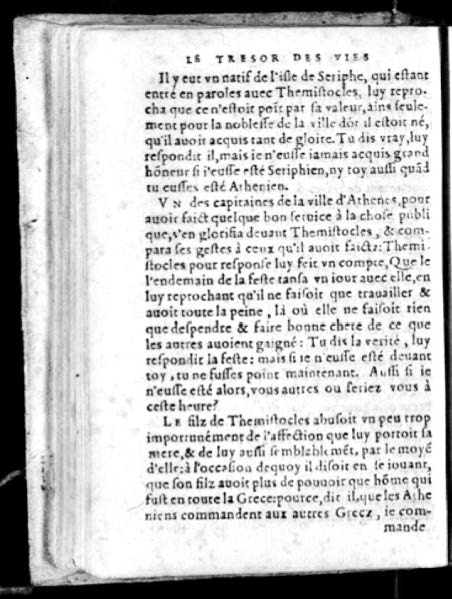 LE TRESOR DES VIES
Il y eut vn natif de l'isle de Seriphe, qui estant
entré en paroles auec Themistocles, luy repro-
cha que ce n'estoit poĩt par sa valeur, ains seule-
ment pour la noblesse de la ville dõt il estoit né,
qu'il auoit acquis tant de gloire. Tu dis vray, luy
respondit il, mais ie n'eusse iamais acquis grand
hõneur si i'eusse esté Seriphien, ny toy aussi quãd
tu eusses esté Athenien.
VN des capitaines de la ville d'Athenes, pour
auoir faict quelque bon seruice à la chose publi
que, s'en glorifia deuant Themistocles, & com-
para ses gestes à ceux qu'il auoit faictz: Themi-
stocles pour response luy feit vn compte, Que le
l'endemain de la feste tansa vn iour auec elle, en
luy reprochant qu'il ne faisoit que trauailler &
auoit toute la peine, là où elle ne faisoit rien
que despendre & faire bonne chere de ce que
les autres auoient gaigné: Tu dis la verité, luy
respondit la feste: mais si ie n'eusse esté deuant
toy, tu ne fusses point maintenant. Aussi si ie
n'eusse esté alors, vous autres ou seriez vous à
ceste heure?
LE filz de Themistocles abusoit vn peu trop
importunément de l'affection que luy portoit sa
mere, & de luy aussi semblablemẽt, par le moyẽ
d'elle: à l'occasion dequoy il disoit en se iouant,
que son filz auoit plus de pouuoir que hõme qui
fust en toute la Grece: pource, dit il, que les Athe
niens commandent aux autres Grecz, ie com-
mande